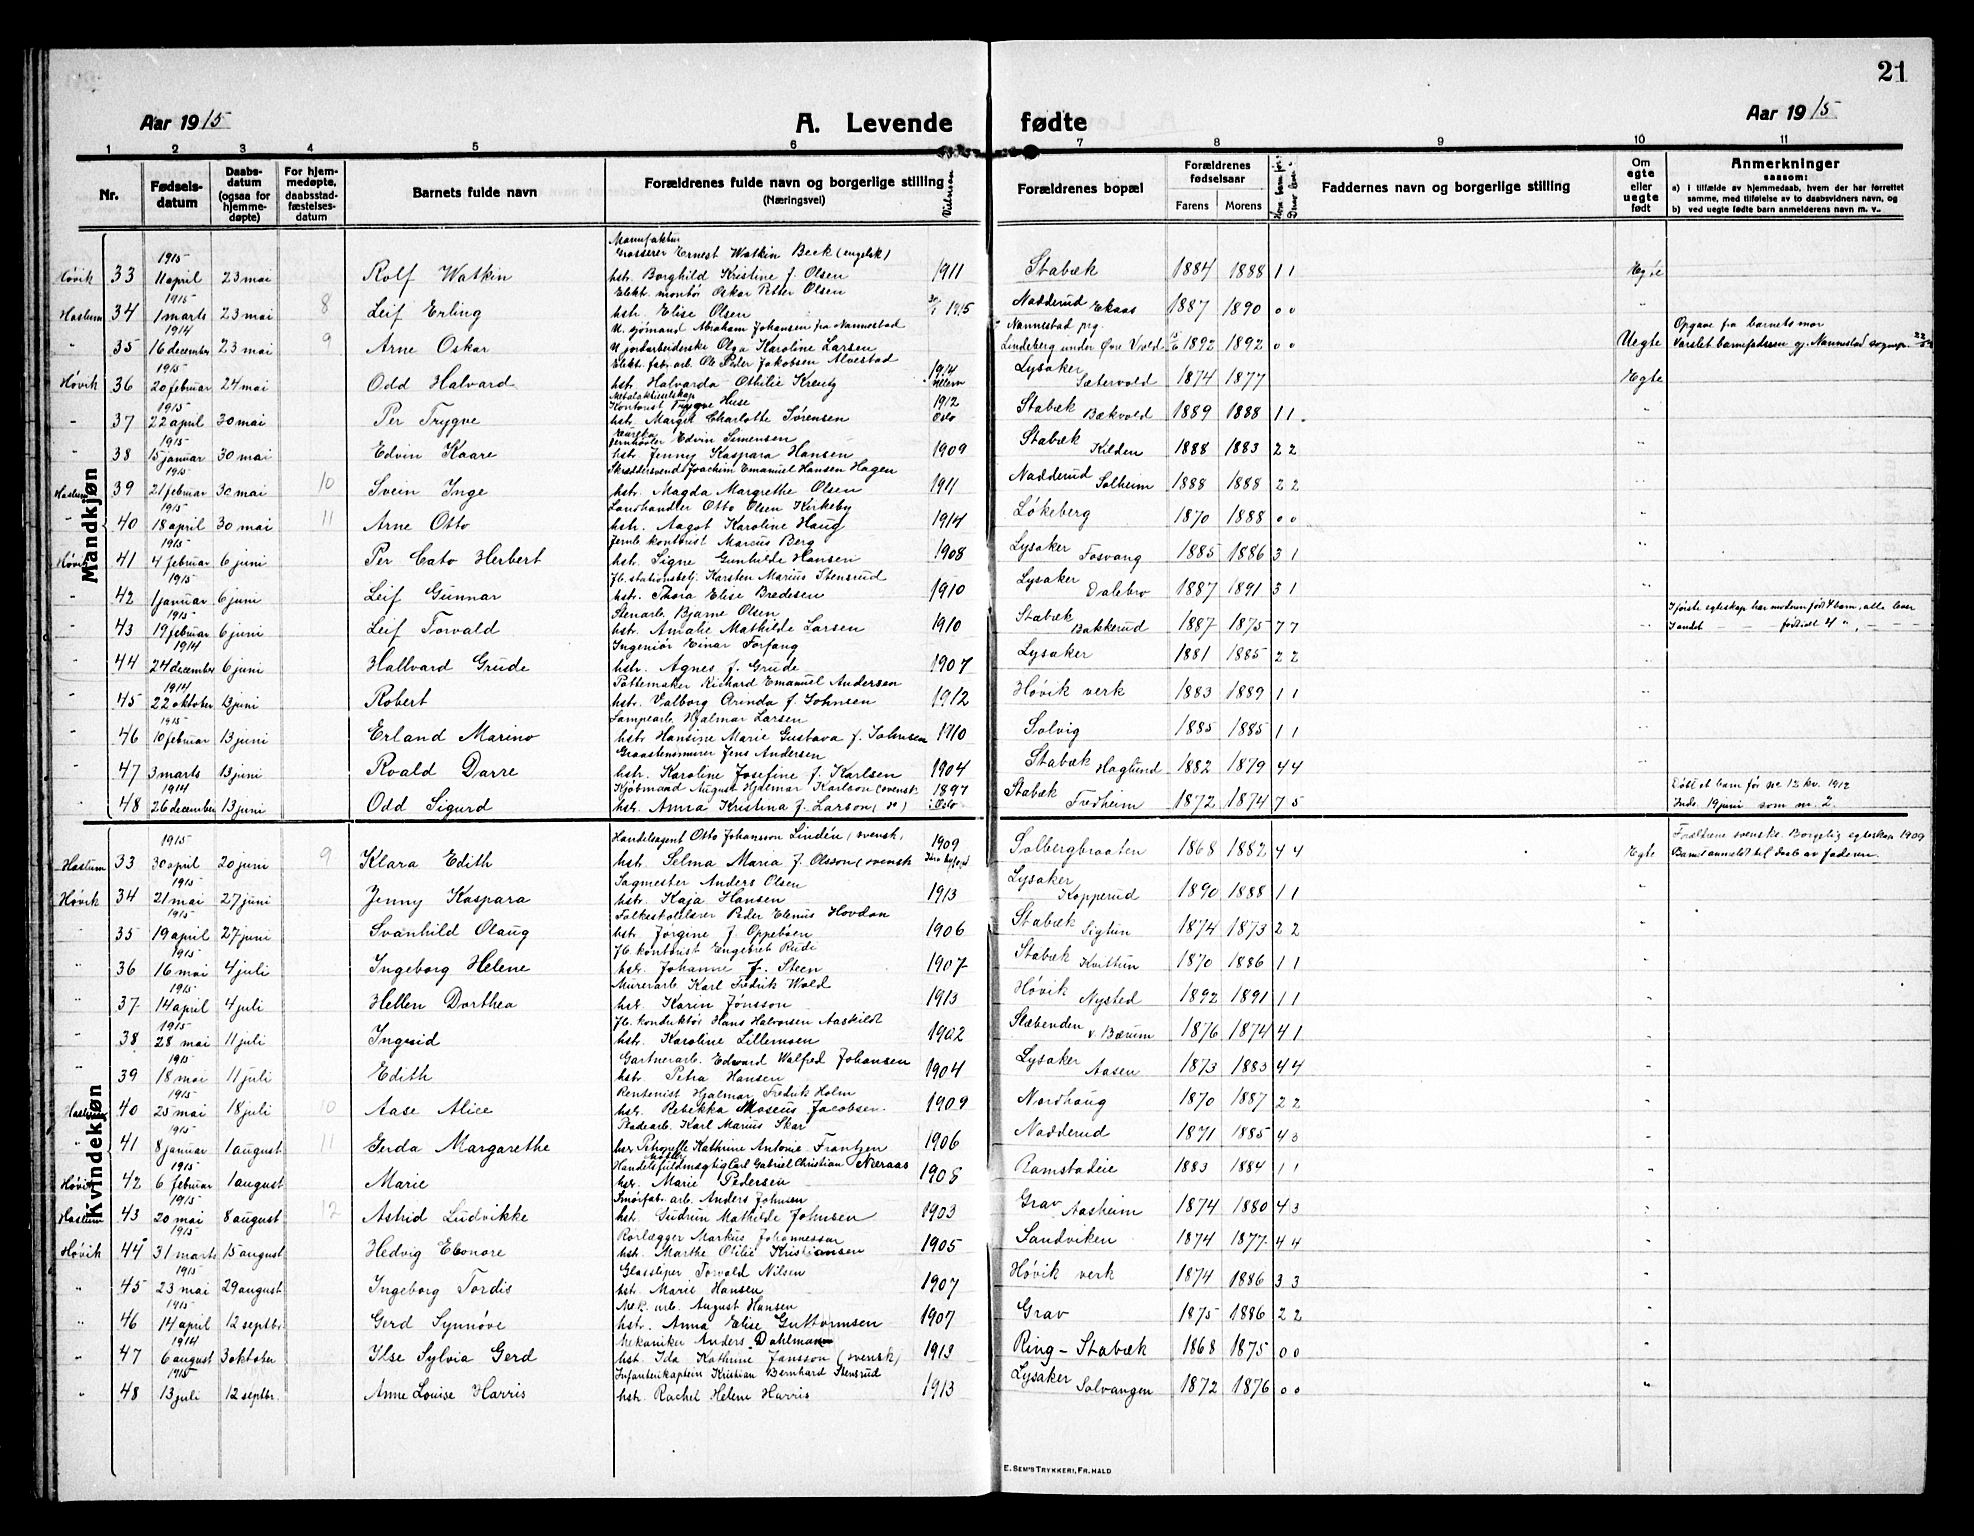 21
Aar 1915
A. Levende fødte
Aar 1915
1 2 3 4 5 6 7 8 9 10 11
Nr.
Fødsels-datum
Daabs-datum (ogsaa for hjemme-døpte)
For hjem-medøpte, daabsstad-fæstelses-datum
Barnets fulde navn
Forældrenes fulde navn og borgerlige stilling (Næringsvei)
Vielsesaar
Forældrenes bopæl
Forældrenes fødselsaar
Farens Morens
Faddernes navn og borgerlige stilling
Om egte eller uegte født
Anmerkninger
saasom:
a) i tilfælde av hjemmedaab, hvem der har forrettet samme, med tilføielse av to daabsvidners navn, og
b) ved uegte fødte barn anmelderens navn m. v..
Mandkjøn
Manufaktur
1915 Grosserer Ernest Watkin Beck (engelsk)
Høvik 33 11 april 23 mai Rolf Watkin hstr. Borghild Kristine f. Olsen 1911 Stabæk 1884 1888 1 1 Egte
1915 Elekt. montør Oskar Petter Olsen
Haslum 34 1 marts 23 mai 8 Leif Erling hstr. Elise Olsen 1915 Nadderud Ekaas 1887 1890 0 0 "
1914 U. sjømand Abraham Johansen fra Nannestad Nannestad prg. Opgave fra barnets mor
" 35 16 december 23 mai 9 Arne Oskar U. jordarbeiderske Olga Karoline Larsen Lindeberg under Øvre Vold 1892 1892 0 0 Uegte Varslet barnefaderen gj. Nannestad sognepr.
1915 Elekt. fab. arb. Ole Peder Jakobsen Alvestad
Høvik 36 20 februar 24 mai Odd Halvard hstr. Halvarda Othilie Kreutz 1914 Ullern Lysaker Sætervold 1874 1877 Egte
1915 Kontorist Trygve Huse
" 37 22 april 30 mai Per Trygve hstr. Margit Charlotte Sørensen 1912 Oslo Stabæk Bækvold 1889 1888 1 1
1915 Jernhøvler Edvin Simensen
" 38 15 januar 30 mai Edvin Kaare hstr. Jenny Kaspara Hansen 1909 Stabæk Kilden 1888 1883 2 2
1915 Skræddersvend Joachim Emanuel Hansen Hagen
Haslum 39 21 februar 30 mai 10 Svein Inge hstr. Magda Margrethe Olsen 1911 Nadderud Solheim 1888 1888 2 2
1915 Landhandler Otto Olsen Kirkeby
" 40 18 april 30 mai 11 Arne Otto hstr. Aagot Karoline Haug 1914 Løkeberg 1870 1888 0 0
1915 Jernb. kontorist Marcus Berg
Høvik 41 4 februar 6 juni Per Cato Herbert hstr. Signe Gunhilde Hansen 1908 Lysaker Fosvang 1885 1886 3 1
1915 Jb. stationsbetj. Karsten Marius Stensrud
" 42 1 januar 6 juni Leif Gunnar hstr. Thora Elise Bredesen 1910 Lysaker Dalebro 1887 1891 3 1
1915 Stenarb. Bjarne Olsen I første egteskap har moderen født 4 barn, alle lever
" 43 19 februar 6 juni Leif Torvald hstr. Amalie Mathilde Larsen 1910 Stabæk Bakkerud 1887 1875 7 7 I andet — — født 4 ", — — —
1914 Ingeniør Einar Forfang
" 44 24 december 6 juni Hallvard Grude hstr. Agnes f. Grude 1907 Lysaker 1881 1885 2 2
1914 Pottemaker Richard Emanuel Andersen
" 45 22 oktober 13 juni Robert hstr. Valborg Orinda f. Johnsen 1912 Høvik verk 1883 1889 1 1
1915 Lampearb. Hjalmar Larsen
" 46 10 februar 13 juni Erland Marino hstr. Hansine Marie Gustava f. Johnsen 1910 Solvig 1885 1885 1 1
1915 Graastensmurer Jens Andersen
" 47 3 marts 13 juni Roald Dorre hstr. Karoline Josefine f. Karlsen 1904 Stabæk Haglund 1882 1879 4 4
1914 Kjøbmand August Hjalmar Karlson (svensk)
" 48 26 december 13 juni Odd Sigurd hstr. Anna Kristina f. Larson (do) 1897 i Oslo Stabæk Fredheim 1872 1874 7 5 Døbt et barn før se 12 kv. 1912 Inds. 19 juni som nr. 2.
Kvindekjøn
1915 Handelsagent Otto Johansson Lindén (svensk) Forældrene svenske. Borgerlig egteskap 1909
Haslum 33 30 april 20 juni 9 Klara Edith hstr. Selma Maria f. Olsson (svensk 1909 Solbergbraaten 1868 1882 4 4 Egte Barnet anmeldt til daab av faderen.
1915 Sagmester Anders Olsen
Høvik 34 21 mai 27 juni Jenny Kaspara hstr. Kaja Hansen 1913 Lysaker Kopperud 1890 1888 1 1
1915 Folkeskolelærer Peder Elenus Hovdan
" 35 19 april 27 juni Svanhild Olaug hst. Jørgine f. Oppebøen 1906 Stabæk Sigtun 1874 1873 2 2
1915 Jb. kontorist Engebret Rude
" 36 16 mai 4 juli Ingeborg Helene hstr. Johanne f. Steen 1907 Stabæk Kvittun 1870 1886 1 1
1915 Murerarb. Karl Fredrik Wold
" 37 14 april 4 juli Hellen Dorthea hst. Karin Jønsson 1913 Høvik Nysted 1892 1891 1 1
1915 Jb. konduktør Hans Halvorsen Aaskildt
" 38 28 mai 11 juli Ingrid hst. Karoline Lillemoen 1902 Slæbenden v. Bærum 1876 1874 4 1
1915 Gartnerarb. Edward Walfred Johansen
" 39 18 mai 11 juli Edith hstr. Petra Hansen 1904 Lysaker Aasen 1873 1883 4 4
1915 Rentenist Hjalmar Fredrik Holm
Haslum 40 25 mai 18 juli 10 Aase Alice hst. Rebekka Moseus Jacobsen 1909 Nordhaug 1870 1887 2 2
1915 Karl Marius Skar
" 41 8 januar 1 august 11 Gerda Margarethe hstr. Petronelle Kathrine Antonie Frantzen 1906 Nadderud 1871 1885 4 3
1915 Handelsfuldmægtig Carl Gabriel Christian Møller Næraas
Høvik 42 6 februar 1 august Marie hst. Marie Pedersen 1908 Ramstadeie 1883 1884 1 1
1915 Smørfab. arb. Anders Johnsen
Haslum 43 20 mai 8 august 12 Astrid Ludvikke hst. Gudrun Mathilde Johnsen 1903 Grav Aasheim 1874 1880 4 3
1915 Rørlægger Markus Johannessen
Høvik 44 31 marts 15 august Hedvig Eleonore hst. Marthe Otilie Kristiansen 1905 Sandviken 1874 1877 4 4
1915 Glassliper Torvald Nilsen
" 45 23 mai 29 august Ingeborg Tordis hst. Marie Hansen 1907 Høvik verk 1874 1886 3 3
1915 Mek. arb. August Hansen
" 46 14 april 12 septbr. Gerd Synnøve hst. Anna Elise Guttormsen 1907 Grav 1875 1886 2 2
1914 Mekaniker Anders Dahlman
" 47 6 august 3 oktober Ilse Sylvia Gerd hst. Ida Kathrine Jansson (svensk) 1913 Ring - Stabæk 1868 1875 0 0
1915 Infanterikaptein Kristian Bernhard Stensrud
" 48 13 juli 12 septbr. Anne Louise Harris hst. Rachel Helene Harris 1913 Lysaker Solvangen 1872 1876 0 0
E. SEM'S TRYKKERI, FR.HALD